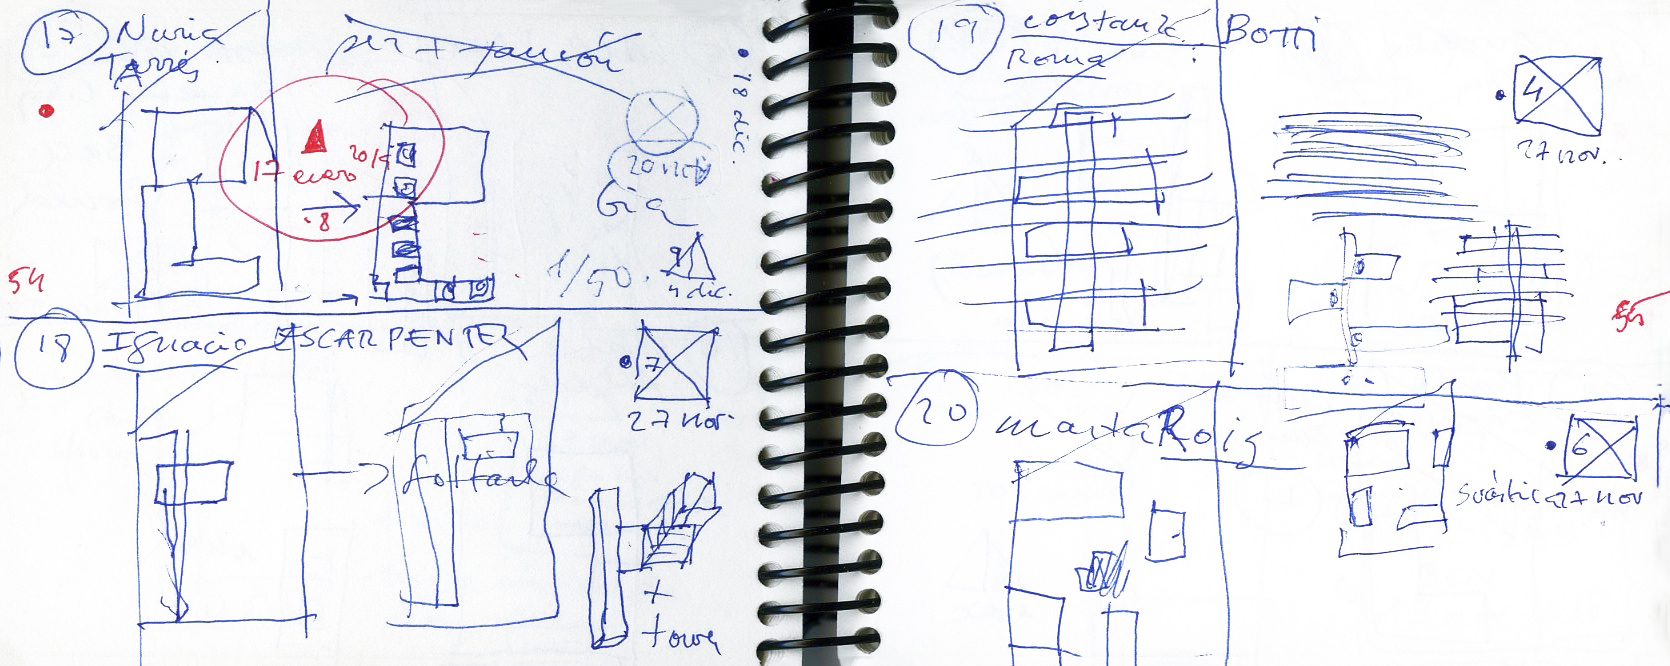 17 Nuria
Tarrés
18 dic.
20 nov
17
enero
8
1/50.
9
4 dic.
54
18 Ignacio ESCARPENTER
7
27 nov.
+
torre
19 constanza Botti
Roma
4
27 nov.
55
20 marta Roig
6
27 nov